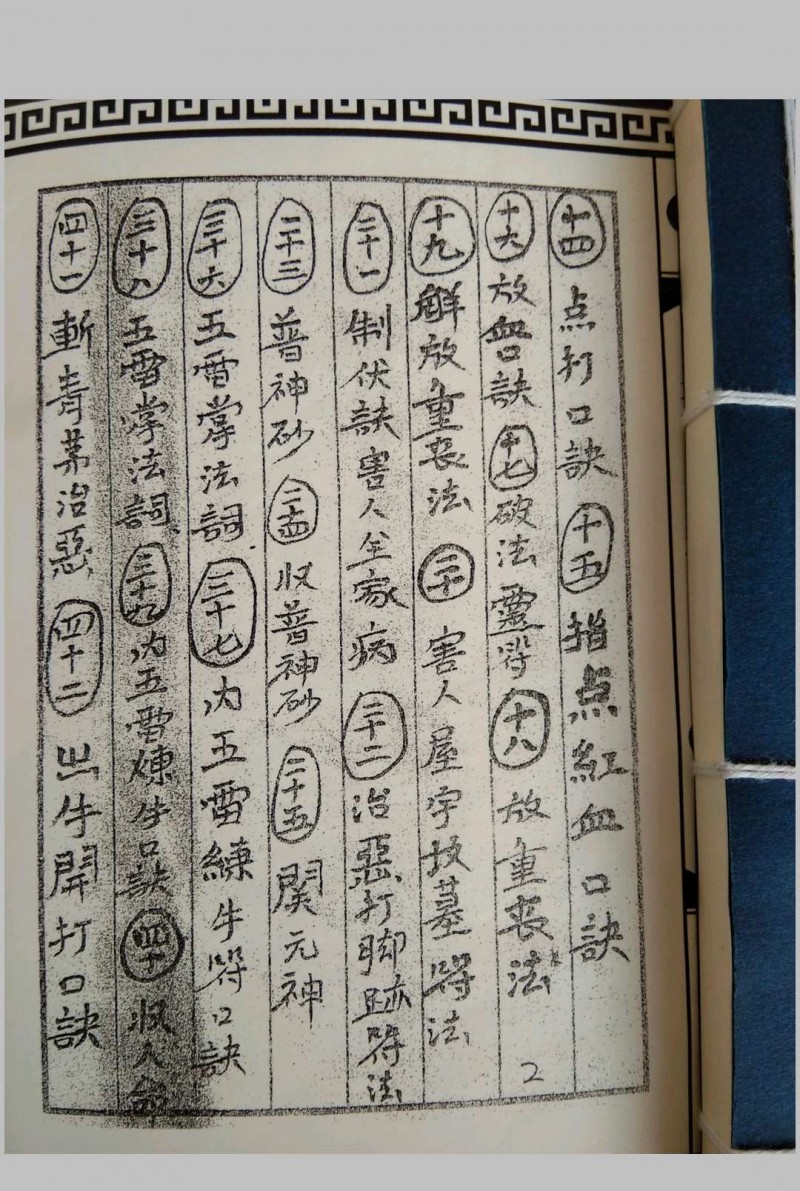 十四 点打口訣 十五 指点紅血口訣
十六 放血口訣 十七 破法靈符 十八 放重丧法
十九 解放重丧法 二十 害人屋宇坟墓符法
二十一 制伏訣害人全家病 二十二 治惡打脚跡符法
二十三 普神砂 二十四 收普神砂 二十五 関元神
三十六 五雷掌法詞 三十七 内五雷練牛符口訣
三十八 五雷掌法詞 三十九 内五雷煉牛口訣 四十 收人命
四十一 斬青草治惡 四十二 出牛開打口訣
2